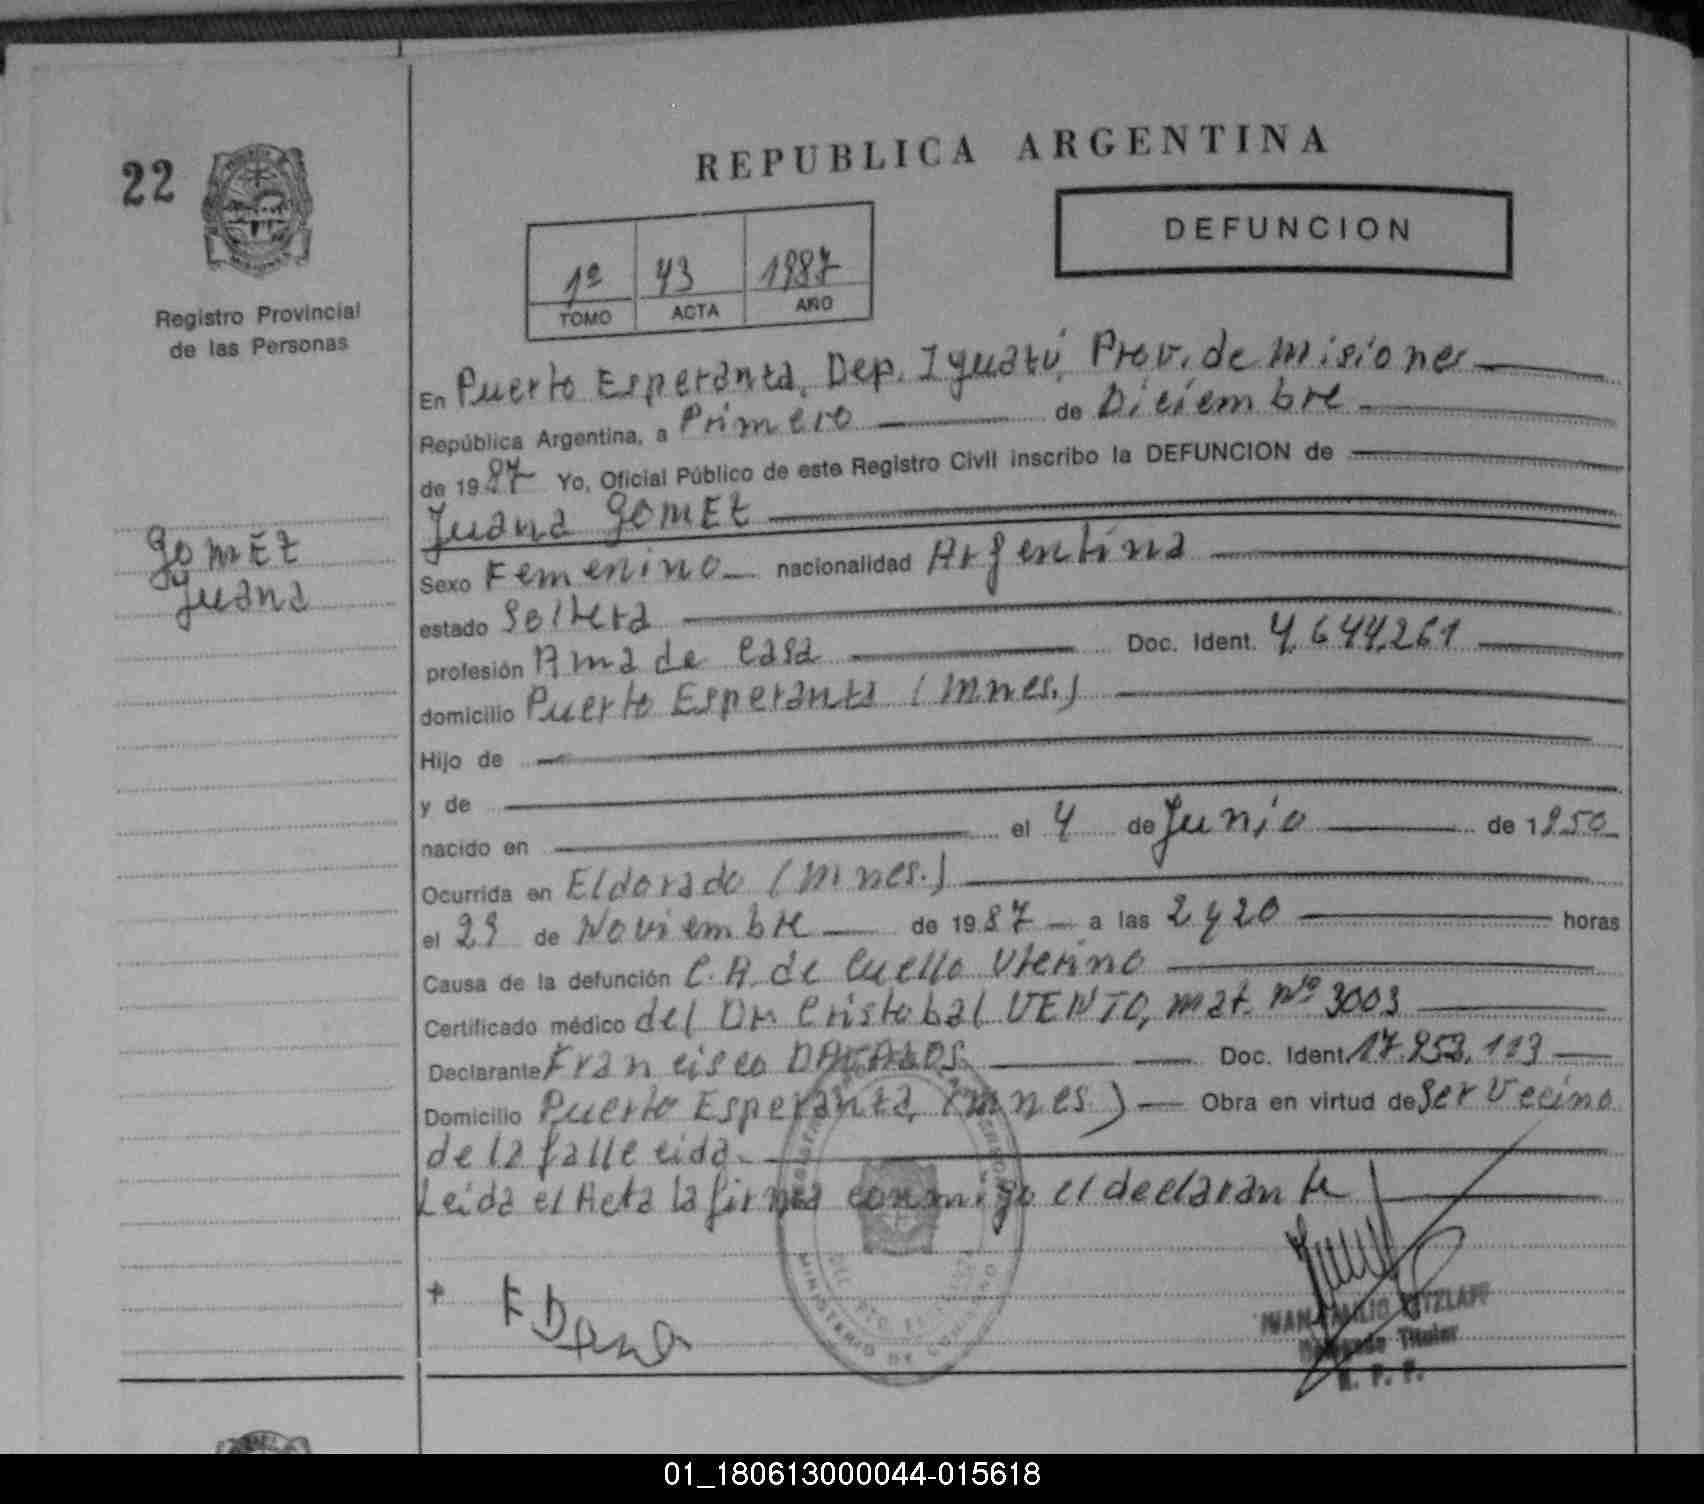 22
REPUBLICA ARGENTINA
DEFUNCION
1º 43 1987
TOMO ACTA AÑO
Registro Provincial
de las Personas
En Puerto Esperanza, Dep. Iguazú, Prov. de Misiones
República Argentina, a Primero de Diciembre
de 1987 Yo, Oficial Público de este Registro Civil inscribo la DEFUNCION de
Juana GOMEZ
GOMEZ
Juana
Sexo Femenino nacionalidad Argentina
estado Soltera
profesión Ama de Casa Doc. Ident. 4.644.261
domicilio Puerto Esperanza (Mnes.)
Hijo de
y de
nacido en el 4 de Junio de 1950
Ocurrida en Eldorado (Mnes.)
el 29 de Noviembre de 1987 a las 2 y 20 horas
Causa de la defunción C.A. de Cuello Uterino
Certificado médico del Dr. Cristobal VENTO, Mat. Nº 3003
Declarante Francisco Doc. Ident. 17.953.113
Domicilio Puerto Esperanza (Mnes.) Obra en virtud de Ser Vecino
de la fallecida.
Leida el Acta la firma conmigo el declarante
MINISTERIO DE GOBIERNO
Titular
R. P. P.
01_180613000044-015618